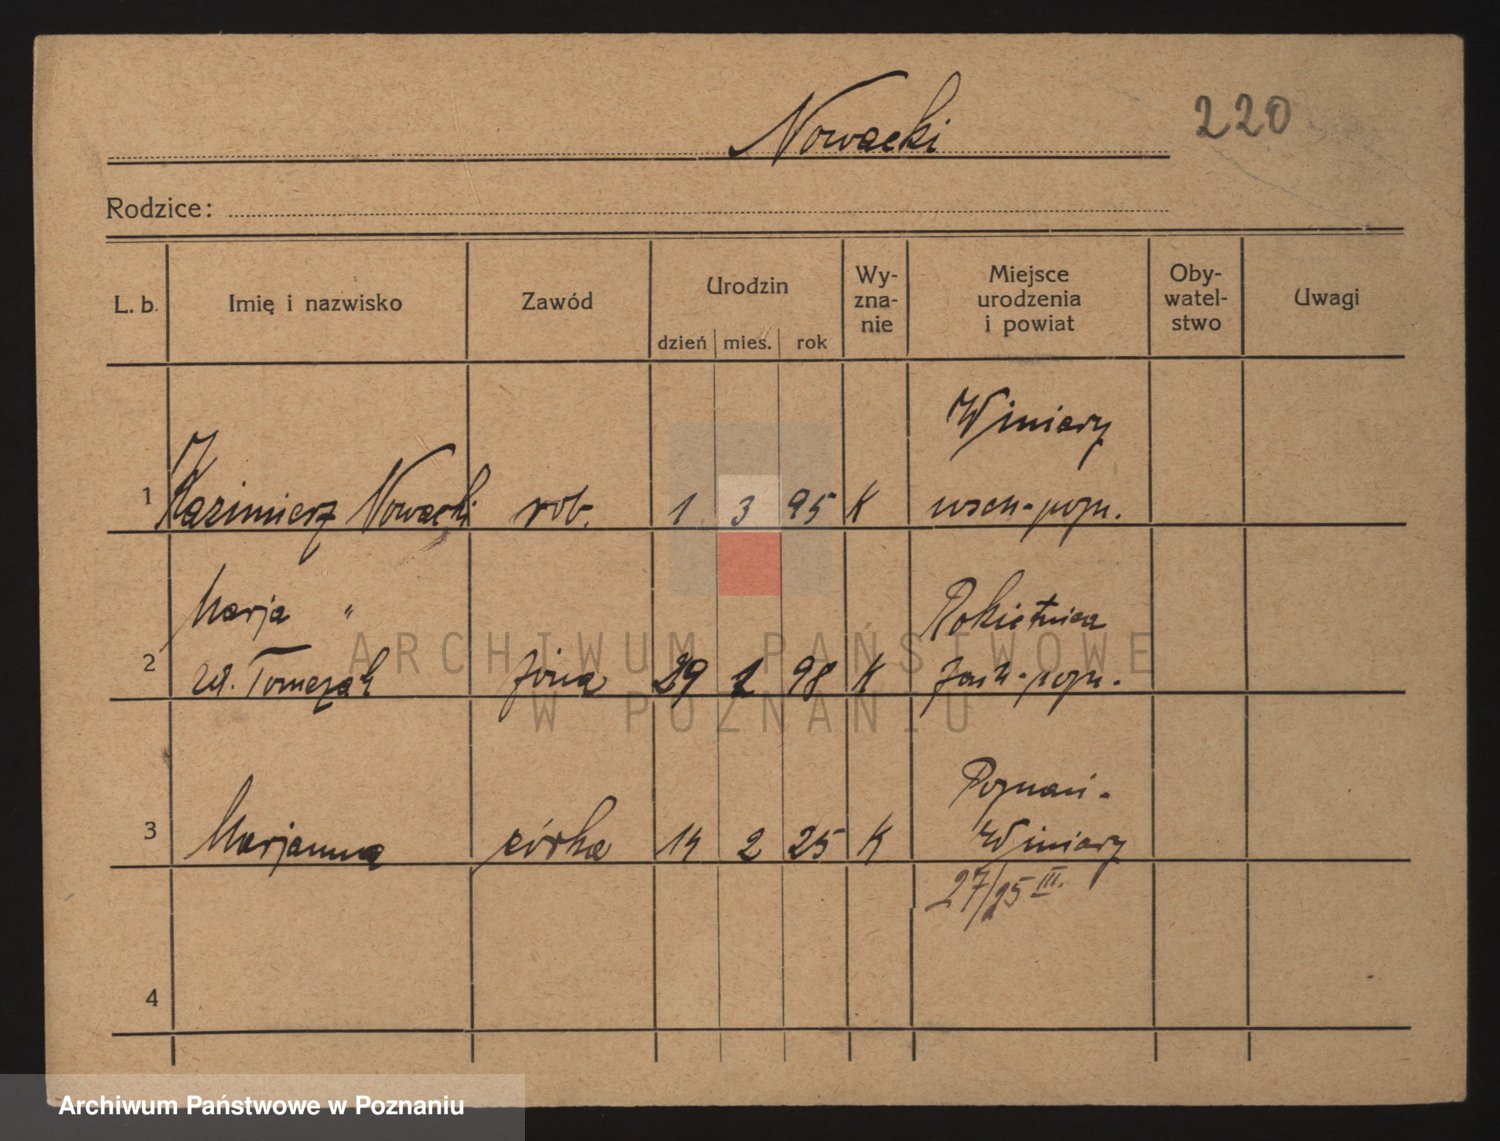 Nowacki
220
Rodzice:
L. b.
Imię i nazwisko
Zawód
Urodzin
dzień
mies.
rok
Wy-
zna-
nie
Miejsce
urodzenia
i powiat
Oby-
watel-
stwo
Uwagi
Winiary
1 Kazimierz Nowacki rob. 1 3 95 K wsch-pozn.
Marja " Rokietnica
2 Tomczak żona 29 1 98 K zach-pozn.
Poznań-
3 Marjanna córka 14 2 25 K Winiary
27/25 III.
4
ARCHIWUM PAŃSTWOWE
W POZNANIU
Archiwum Państwowe w Poznaniu